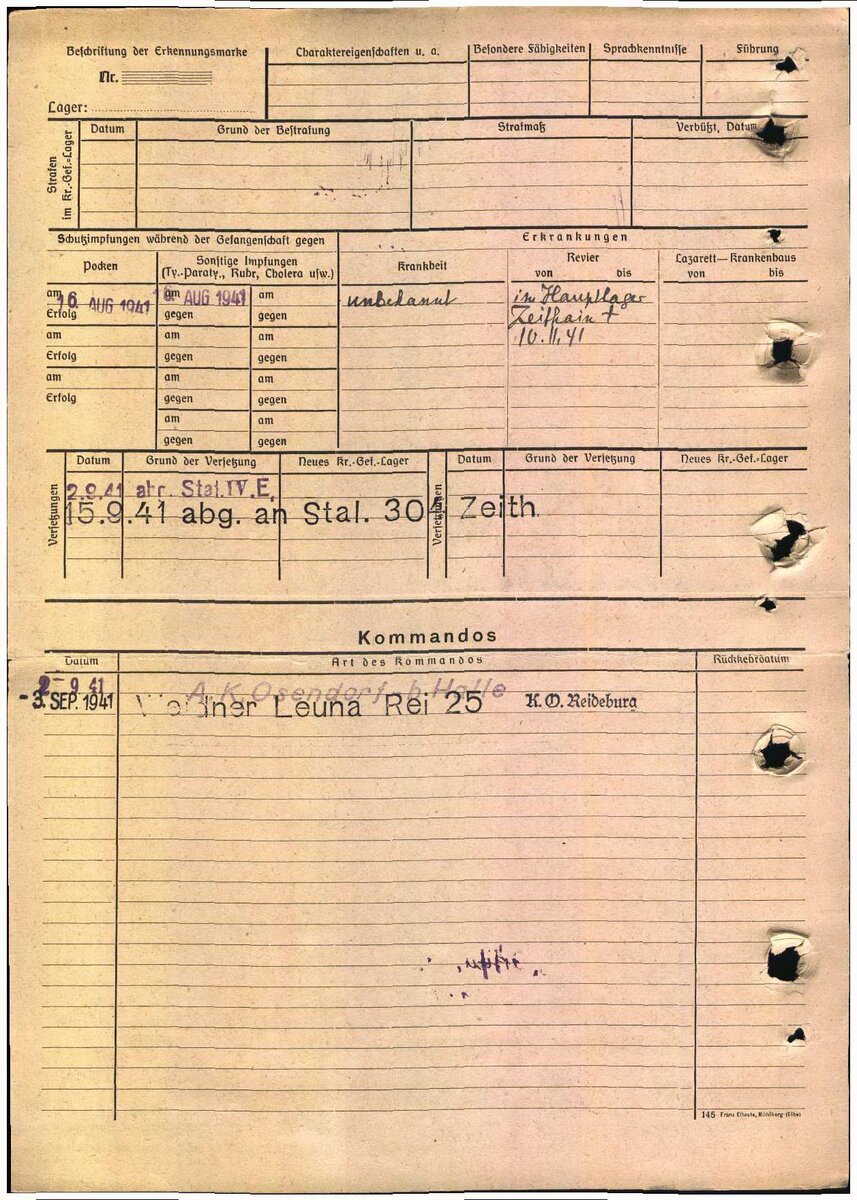 Beschriftung der Erkennungsmarke
Nr.
Lager:
Charaktereigenschaften u. a.
Besondere Fähigkeiten
Sprachkenntnisse
Führung
Strafen
im Kr.-Gef.-Lager
Datum
Grund der Bestrafung
Strafmaß
Verbüßt, Datum
Schutzimpfungen während der Gefangenschaft gegen
Erkrankungen
Pocken
Sonstige Impfungen
(Ty.-Paraty., Ruhr, Cholera usw.)
Krankheit
Revier
von bis
Lazarett — Krankenhaus
von bis
am 16. AUG 1941
am 16. AUG 1941
am
unbekannt
im Hauptlager
Erfolg
gegen
gegen
Zeithain †
am
am
am
10.11.41
Erfolg
gegen
gegen
am
am
am
Erfolg
gegen
gegen
am
am
gegen
gegen
Versetzungen
Datum
Grund der Versetzung
Neues Kr.-Gef.-Lager
Versetzungen
Datum
Grund der Versetzung
Neues Kr.-Gef.-Lager
2.9.41 Stal. IV. E,
15.9.41 abg. an Stal. 304 Zeith
Kommandos
Datum
Art des Kommandos
Rückkehrdatum
2- 9 41 A. K. Osendorf b. Halle
-3. SEP. 1941 Leuna Rei 25 K.O. Reideburg
145 Franz Elteste, Mühlberg (Elbe)